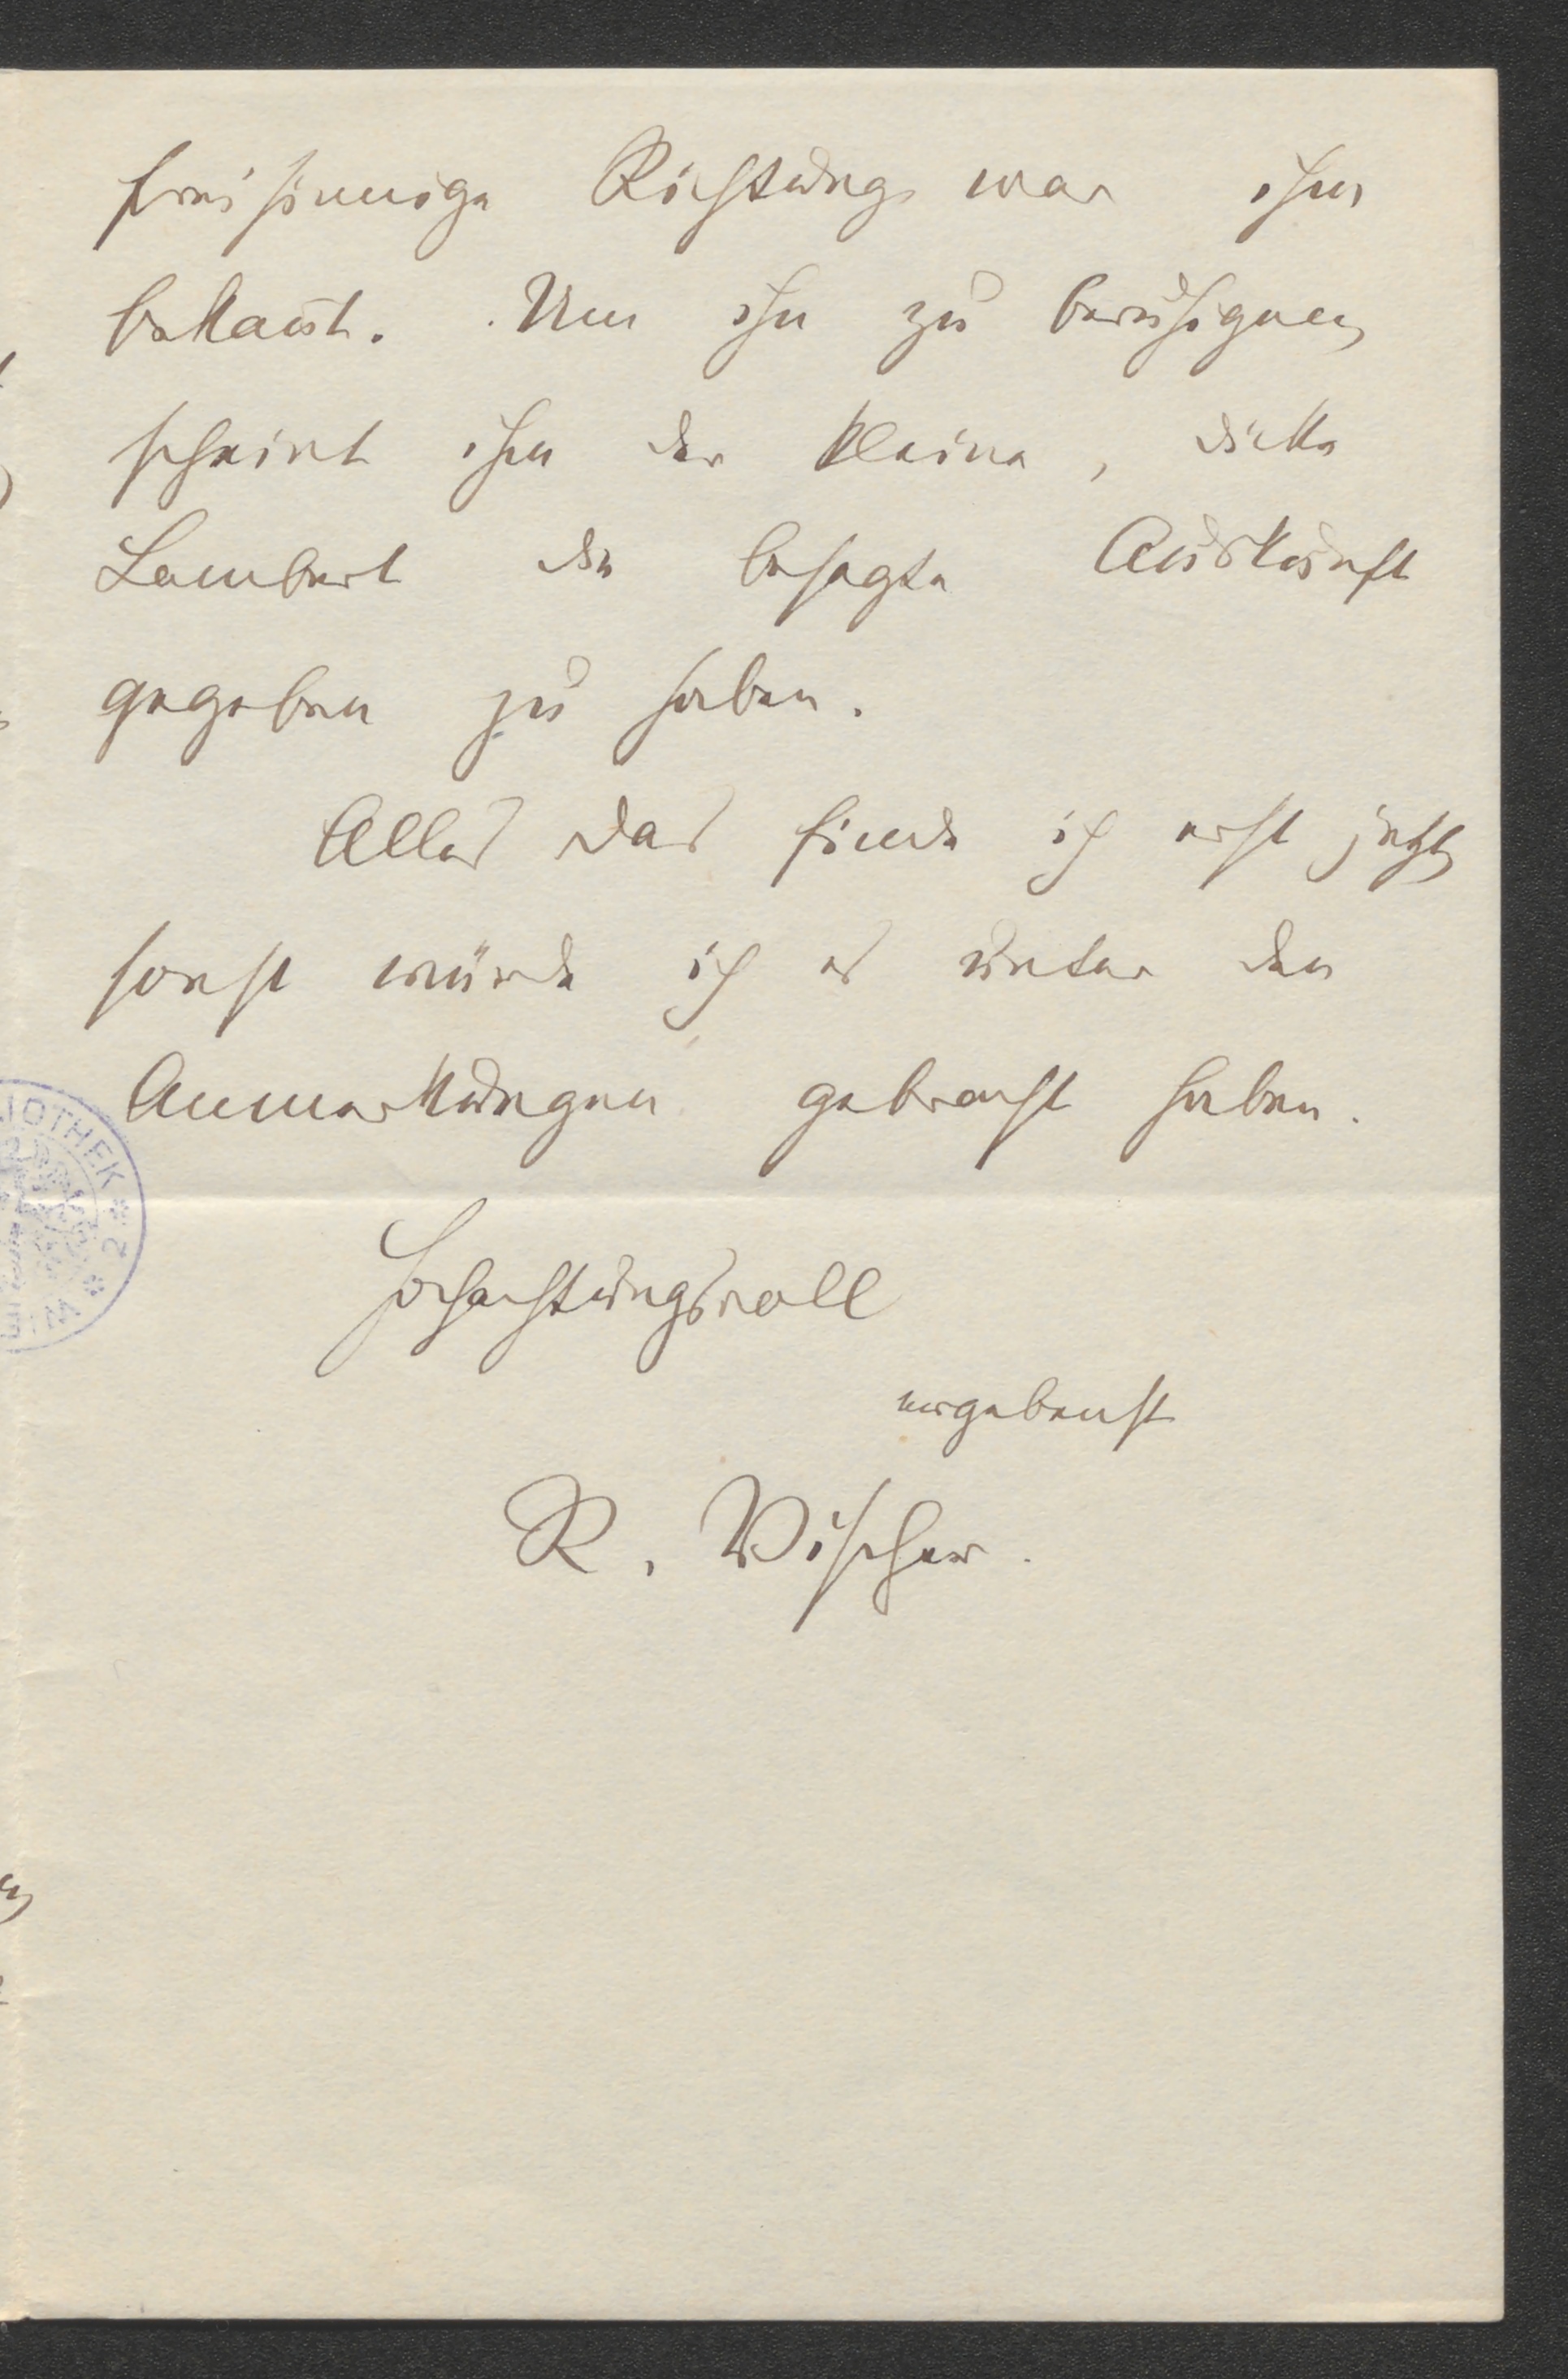 freisinnige Richtung war ihm
bekannt. Um ihn zu beruhigen,
scheint ihm der kleine, dicke
Lambert die besagte Auskunft
gegeben zu haben.
Alles das finde ich erst jetzt,
sonst würde ich es unter den
Anmerkungen gebracht haben.
Hochachtungsvoll
ergebenst
R. Vischer.
IOTHEK * 2 * WIE